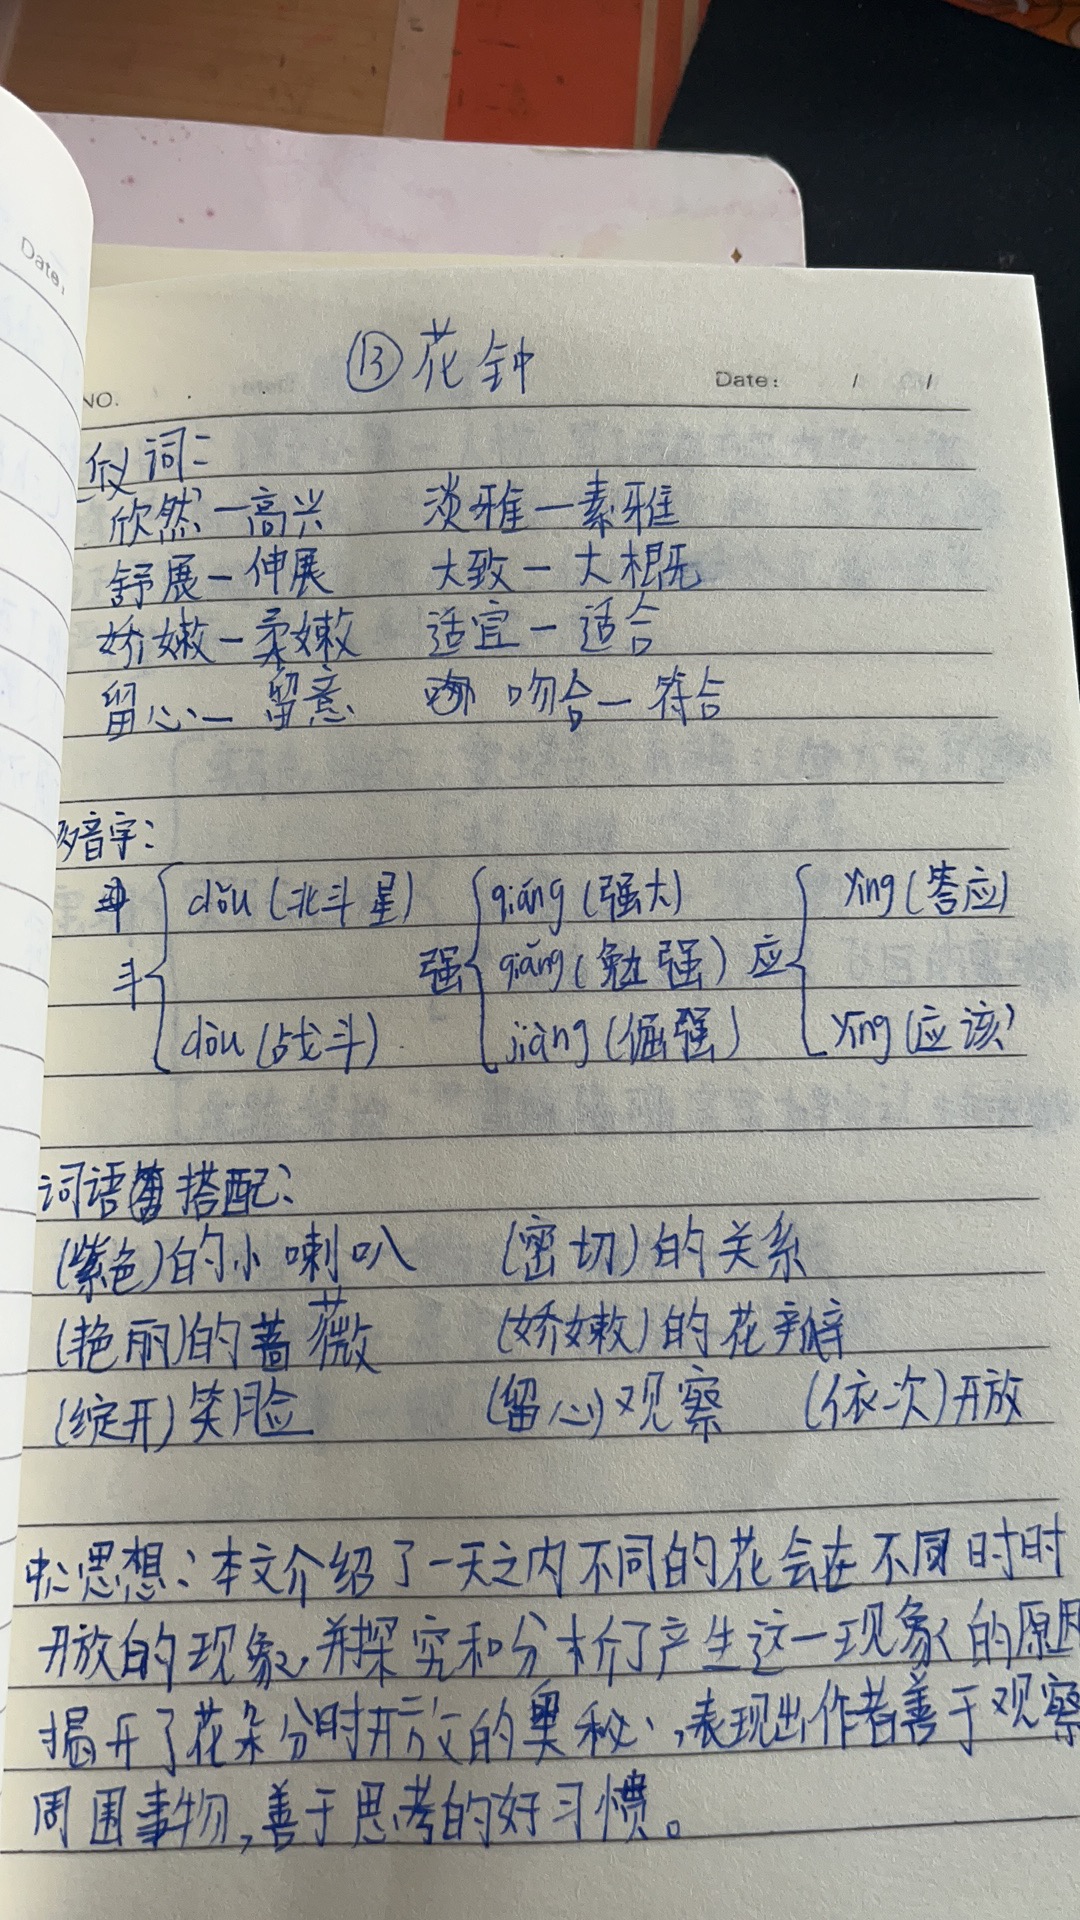 Date:
⑬花钟
NO.
Date: / /
近义词:
欣然—高兴 淡雅—素雅
舒展—伸展 大致—大概
娇嫩—柔嫩 适宜—适合
留心—留意 吻合—符合
多音字:
斗 dǒu(北斗星) dòu(战斗)
强 qiáng(强大) qiǎng(勉强) jiàng(倔强)
应 yìng(答应) yīng(应该)
词语搭配:
(紫色)的小喇叭 (密切)的关系
(艳丽)的蔷薇 (娇嫩)的花瓣
(绽开)笑脸 (留心)观察 (依次)开放
中心思想:本文介绍了一天之内不同的花会在不同时时
开放的现象,并探究和分析了产生这一现象的原因
揭开了花朵分时开放的奥秘,表现出作者善于观察
周围事物,善于思考的好习惯。